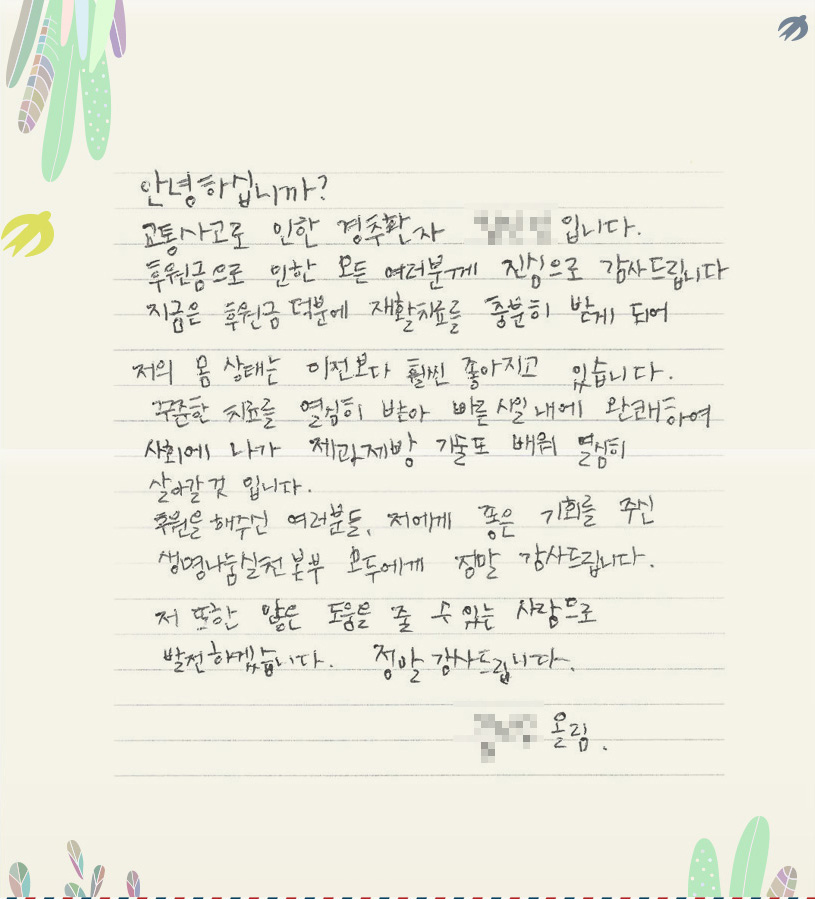 안녕하십니까?
교통사고로 인한 경추환자 입니다.
후원금으로 인한 모든 여러분께 진심으로 감사드립니다
지금은 후원금 덕분에 재활치료를 충분히 받게 되어
저의 몸 상태는 이전보다 훨씬 좋아지고 있습니다.
꾸준한 치료를 열심히 받아 빠른 시일내에 완쾌하여
사회에 나가 제과제빵 기술도 배워 열심히
살아갈것 입니다.
후원을 해주신 여러분들, 저에게 좋은 기회를 주신
생명나눔실천본부 모두에게 정말 감사드립니다.
저 또한 많은 도움을 줄 수 있는 사람으로
발전하겠습니다. 정말 감사드립니다.
올림.